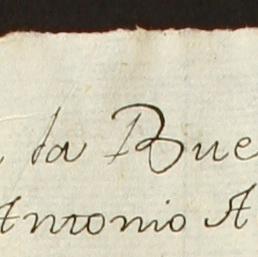 la Bue
Antonio A